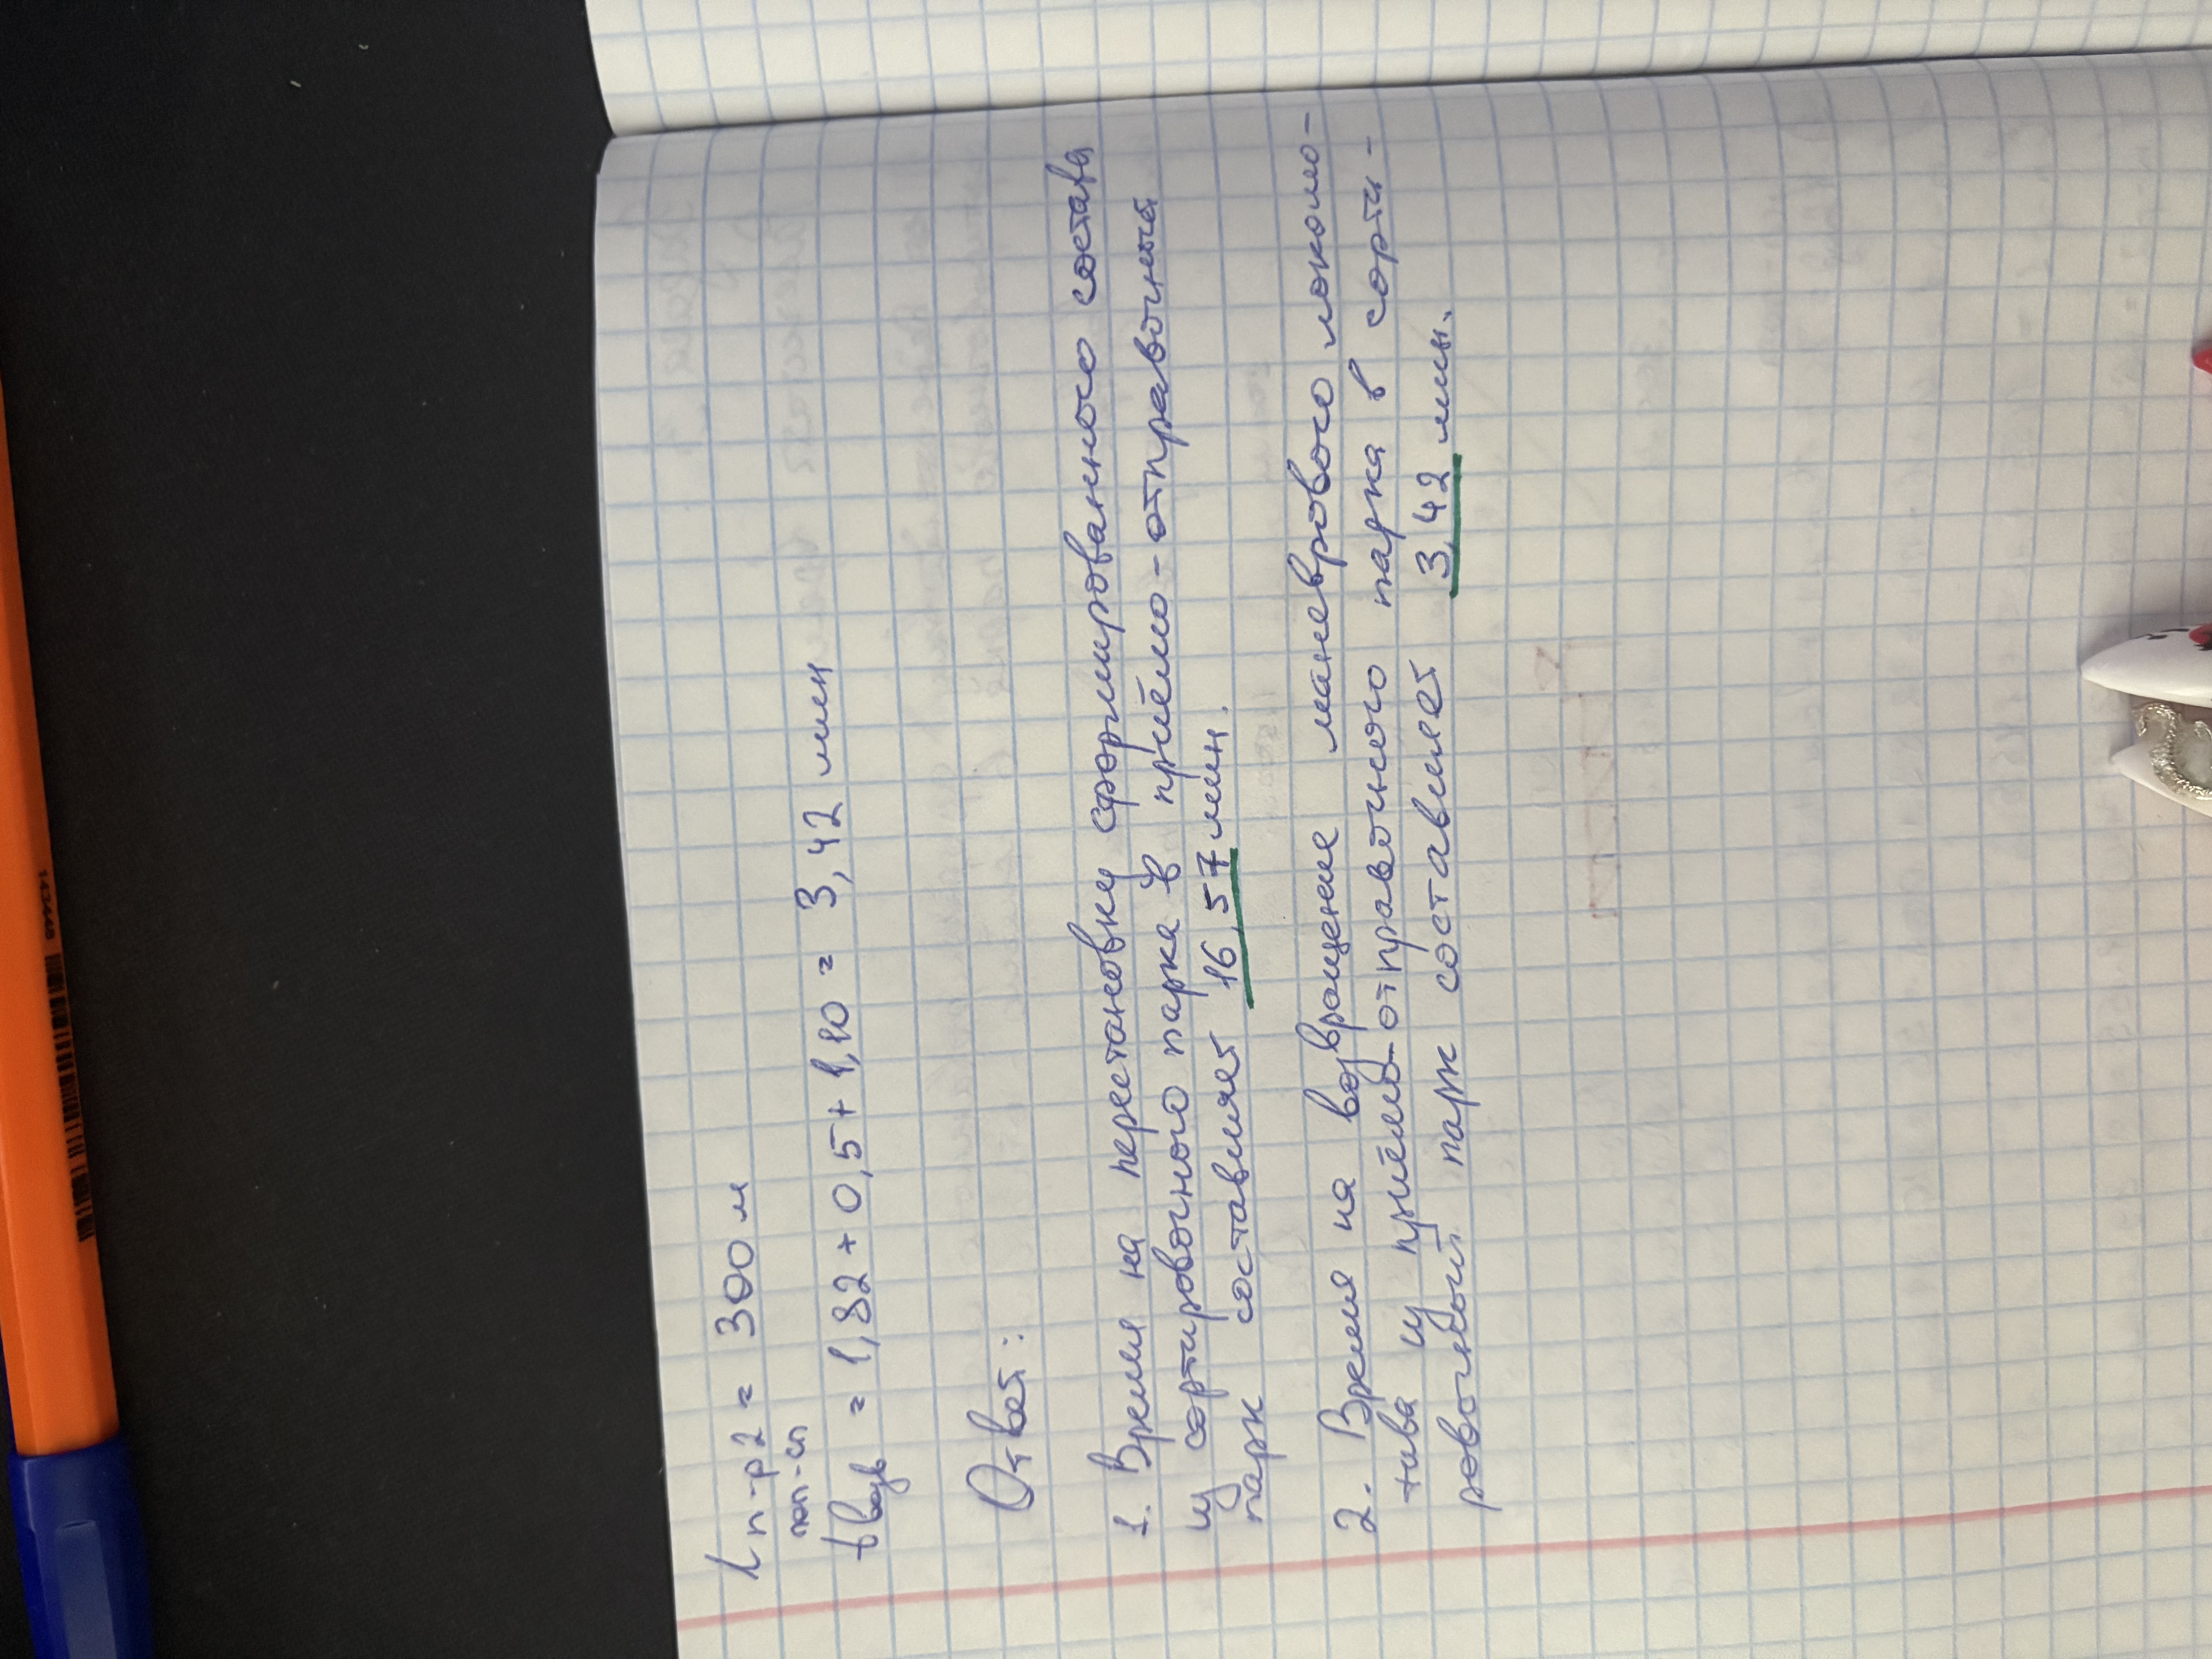 l п-р2 = 300 м
t возв поп-сп = 1,82 + 0,5 + 1,10 = 3,42 мин
Ответ:
1. Время на перестановку сформированного состава
из сортировочного парка в приёмо-отправочный
парк составляет 16,57 мин.
2. Время на возвращение маневрового локомо-
тива из приёмо-отправочного парка в сорти-
ровочный парк составляет 3,42 мин.
143446